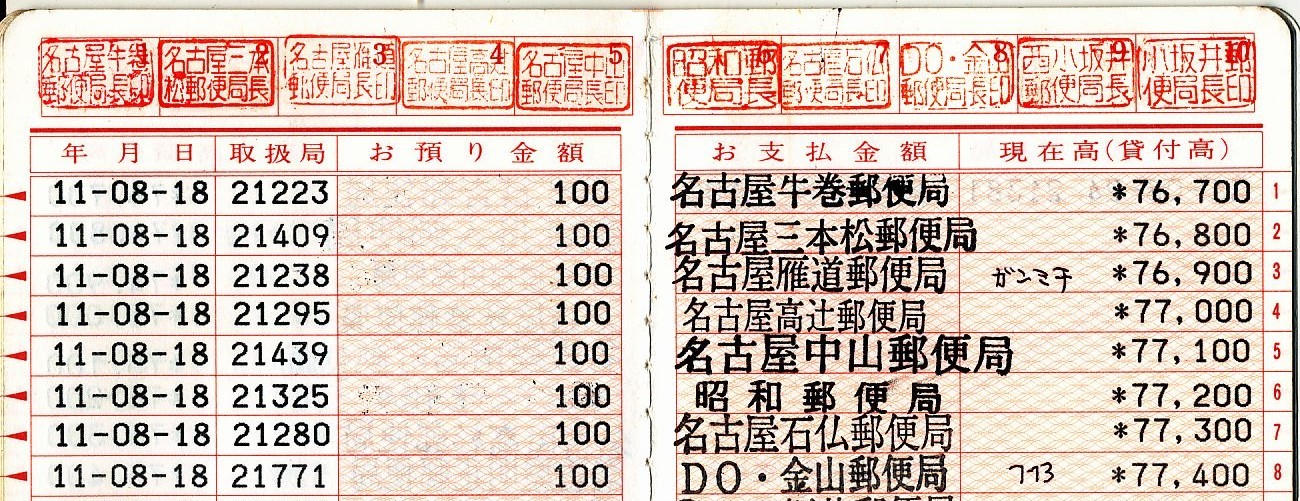 名古屋牛巻郵便局長印 1 名古屋三本松郵便局長印 2 名古屋雁道郵便局長印 3 名古屋高辻郵便局長印 4 名古屋中山郵便局長印 5 昭和郵便局長 6 名古屋石仏郵便局長印 7 DO・金山郵便局長印 8 西小坂井郵便局長印 9 小坂井郵便局長印 10
年月日 取扱局 お預り金額 お支払金額 現在高(貸付高)
11-08-18 21223 100 名古屋牛巻郵便局 *76,700 1
11-08-18 21409 100 名古屋三本松郵便局 *76,800 2
11-08-18 21238 100 名古屋雁道郵便局 ガンミチ *76,900 3
11-08-18 21295 100 名古屋高辻郵便局 *77,000 4
11-08-18 21439 100 名古屋中山郵便局 *77,100 5
11-08-18 21325 100 昭和郵便局 *77,200 6
11-08-18 21280 100 名古屋石仏郵便局 *77,300 7
11-08-18 21771 100 DO・金山郵便局 *77,400 8